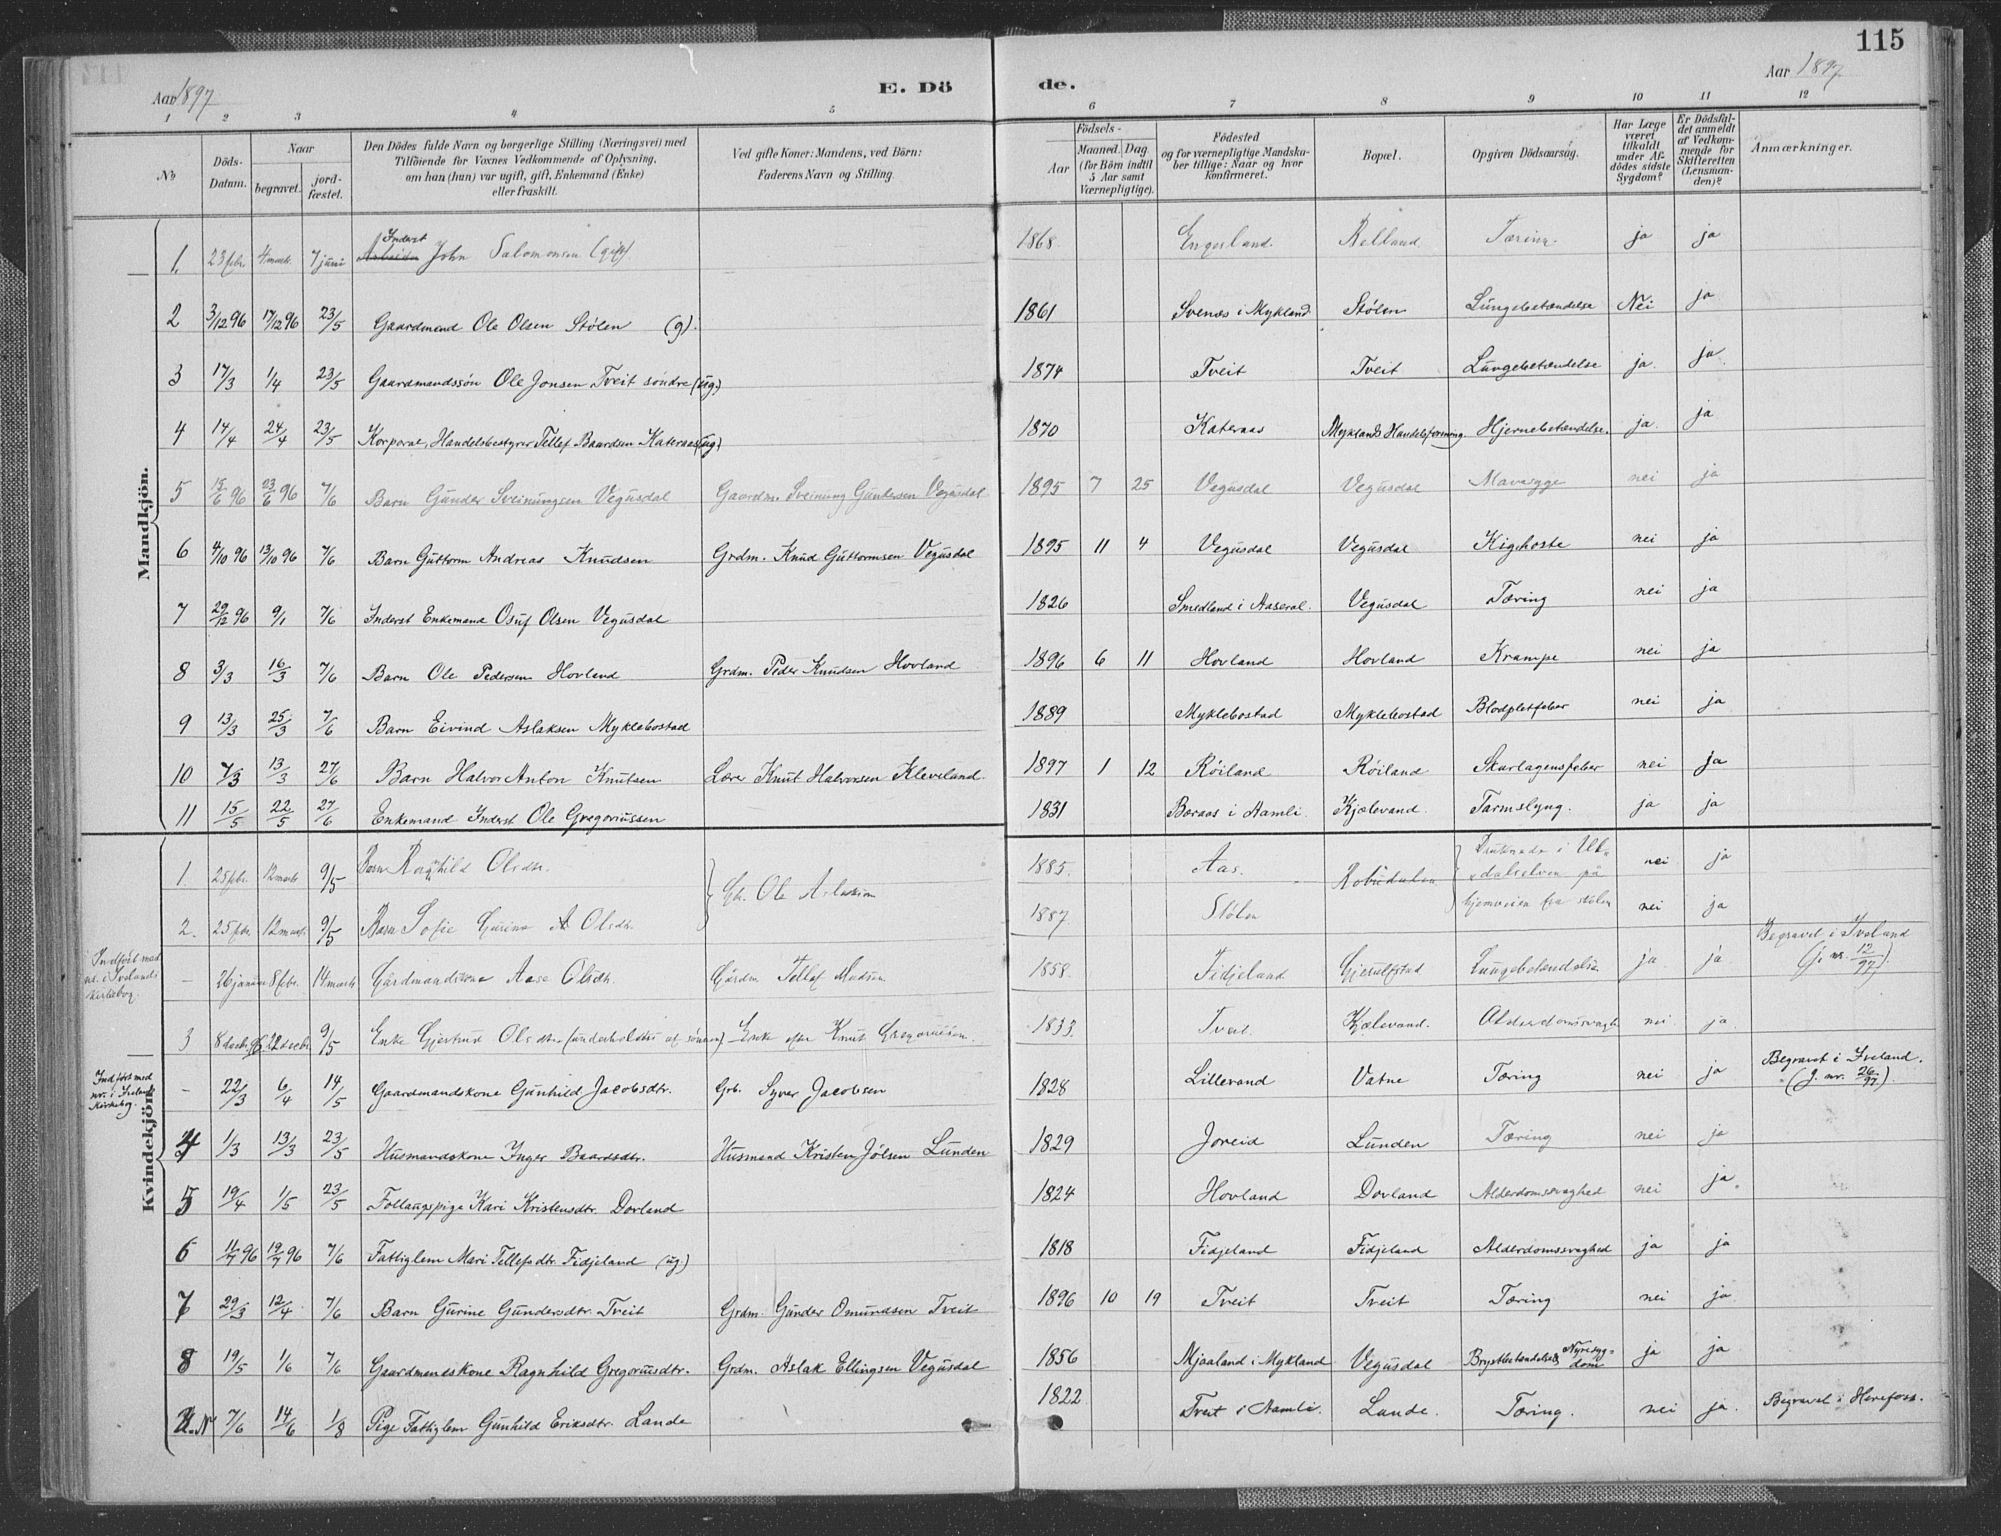 115
Aar 1897
E. Dö
de.
Aar 1897
1 2 3 4 5 6 7 8 9 10 11 12
No
Döds-Datum.
Naar
begravet.
jord-fæstet.
Den Dödes fulde Navn og borgerlige Stilling (Næringsvei) med
Tilföiende for Voxnes Vedkommende af Oplysning,
om han (hun) var ugift, gift, Enkemand (Enke)
eller fraskilt.
Ved gifte Koner: Mandens, ved Börn:
Faderens Navn og Stilling.
Födsels-
Aar
Maaned. Dag.
(for Börn indtil
5 Aar samt
Værnepligtige).
Födested
og for værnepligtige Mandska-
ber tillige: Naar og hvor
konfirmeret.
Bopæl.
Opgiven Dödsaarsag.
Har Læge
været
tilkaldt
under Af-
dödes sidste
Sygdom?
Er Dödsfal-
det anmeldt
af Vedkom-
mende for
Skifteretten
(Lensman-
den)?
Anmærkninger.
Mandkjön.
1. 23 febr. 4 marts 7 juni Inderst John Salomonsen (gift). 1868. Engesland. Relland Tæring. ja ja
2 3/12 96 17/12 96 23/5 Gaardmand Ole Olsen Stølen (g). 1861 Svenæs i Mykland Stølen Lungebetændelse Nei ja
3 17/3 1/4 23/5 Gaardmandssøn Ole Jonsen Tveit söndre (ug.) 1874 Tveit Tveit Lungebetændelse ja. ja.
4 14/4 24/4 23/5 Korporal, Handelsbestyrer Tellef Baardsen Katernaas (ug) 1870 Katernas Myklands Handelsforening. Hjernebetændelse. ja. ja
5 15/6 96 23/6 96 7/6 Barn Gunder Sveinungsen Vegusdal Gaardm. Sveinung Gundersen Vegusdal 1895 7 25 Vegusdal Vegusdal Mavesyge nei ja
6 4/10 96 13/10 96 7/6 Barn Guttorm Andreas Knudsen Grdm. Knud Guttormsen Vegusdal 1895 11 4 Vegusdal Vegusdal Kighoste nei ja
7 29/12 96 9/1 7/6 Inderst Enkemand Osuf Olsen Vegusdal 1826 Smedland i Aaseral. Vegusdal Tæring nei ja
8 3/3 16/3 7/6 Barn Ole Pedersen Hovland Grdm. Peder Knudsen Hovland 1896 6 11 Hovland Hovland Krampe nei ja
9 13/3 25/3 7/6 Barn Eivind Aslaksen Myklebostad 1889 Myklebostad Myklebostad Blodpletfeber nei ja
10 7/3 13/3 27/6 Barn Halvor Anton Knutsen Lærer Knut Halvorsen Kleveland. 1897 1 12 Röiland Röiland Skarlagensfeber nei ja
11 15/5 22/5 27/6 Enkemand Inderst Ole Gregoriussen 1831 Beraas i Aamli. Kjælevand. Tarmslyng. ja ja
Kvindekjön.
1. 25 febr. 12 marts 9/5 Barn Ragnhild Olsdtr. Gb. Ole Aslaksen 1885. Aas. Robudalen Druknede i Ub- nei ja
dalselven på
2. 25 febr. 12 marts. 9/5 Barn Sofie Gurine Olsdtr. 1887. Stølen hjemveien fra skolen nei ja
Indført med
nr. i Ivelands
kirkebog.
– 26 januar 8 febr. 14 marts Gårdmandskone Aase Olsdtr. Gårdm. Tellef 1858. Fidjeland Gjesulfstad Lungebetændelse ja ja. Begravet i Iveland
(j. nr. 12/97).
3 8 decbr 96 22 decbr. 9/5 Enke Gjertrud Olsdtr (underholdtes af sönnen) Enke efter Knut Gregoriussen. 1833. Tveit. Kjælevand. Alderdomssvaghed nei ja.
Indført med
nr. i Iveland
Kirkebog.
– 22/3 6/4 14/5 Gaardmandskone Gunhild Jacobsdtr. Grb. Syver Jacobsen 1828 Lillevand Vatne Tæring nei ja Begravet i Iveland.
(J. nr. 26/97).
4 1/3 13/3 23/5 Husmandskone Inger Baardsdtr. Husmand Kristen Jölsen Lunden 1829 Joreid Lunden Tæring nei ja
5 19/4 1/5 23/5 Follaugspige Kari Kristensdtr. Dovland 1824 Hovland Dovland Alderdomssvaghed nei ja.
6 11/7 96 19/7 96 7/6 Fattiglem Mari Tellefsdtr. Fidjeland (ug.) 1818 Fidjeland Fidjeland Alderdomssvaghed ja ja
7 29/3 12/4 7/6 Barn Gurine Gundersdtr. Tveit Grdm. Gunder Omundsen Tveit 1896 10 19 Tveit Tveit Tæring nei ja.
8 19/5 1/6 7/6 Gaardmandskone Ragnhild Gregoriusdtr. Grdm. Aslak Ellingsen Vegusdal 1856 Mjaaland i Mykland Vegusdal Brystbetændelse, Nyresyg-
dom ja ja
U.N 7/6 14/6 1/8 Pige Fattiglem Gunhild Eriksdtr. Lande 1822 Tveit i Aamli. Lande. Tæring. nei ja. Begravet i Herefoss.